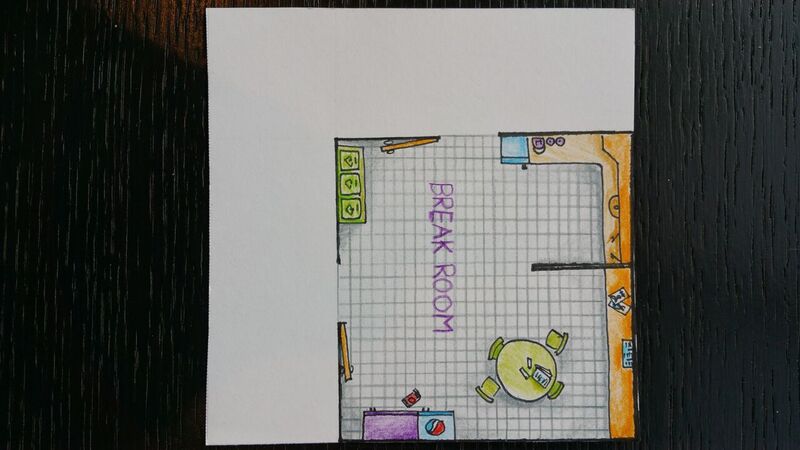 BREAK ROOM